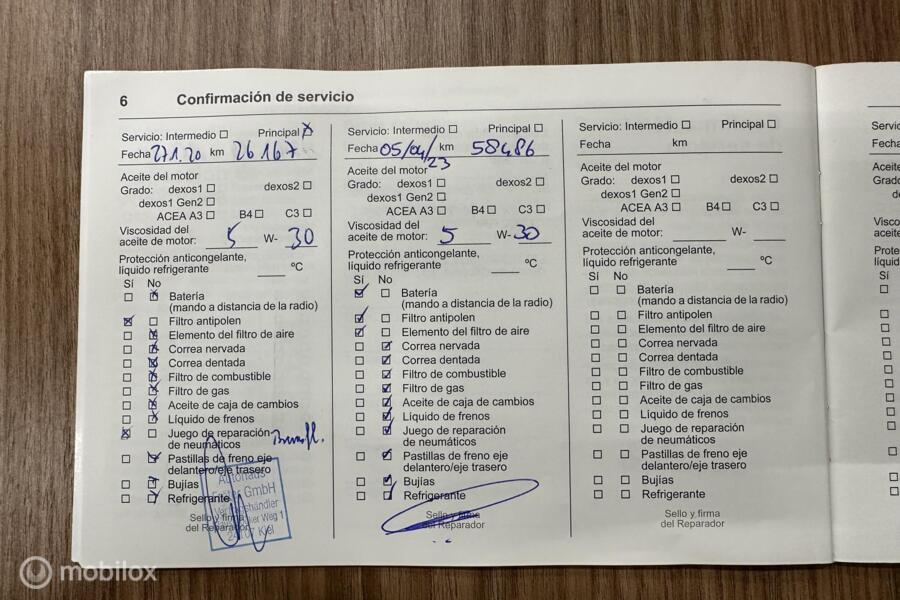 6 Confirmación de servicio
Servicio: Intermedio Principal
Fecha 27.1.20 km 26167
Aceite del motor
Grado: dexos1 dexos2
dexos1 Gen2
ACEA A3 B4 C3
Viscosidad del
aceite de motor: 5 W- 30
Protección anticongelante,
líquido refrigerante ºC
Sí No
Batería
(mando a distancia de la radio)
Filtro antipolen
Elemento del filtro de aire
Correa nervada
Correa dentada
Filtro de combustible
Filtro de gas
Aceite de caja de cambios
Líquido de frenos
Juego de reparación
de neumáticos
Pastillas de freno eje
delantero/eje trasero
Bujías
Refrigerante
Sello y firma
del Reparador
Autohaus
GmbH
Weg 1
Kiel
Servicio: Intermedio Principal
Fecha 05/04/23 km 58486
Aceite del motor
Grado: dexos1 dexos2
dexos1 Gen2
ACEA A3 B4 C3
Viscosidad del
aceite de motor: 5 W- 30
Protección anticongelante,
líquido refrigerante ºC
Sí No
Batería
(mando a distancia de la radio)
Filtro antipolen
Elemento del filtro de aire
Correa nervada
Correa dentada
Filtro de combustible
Filtro de gas
Aceite de caja de cambios
Líquido de frenos
Juego de reparación
de neumáticos
Pastillas de freno eje
delantero/eje trasero
Bujías
Refrigerante
Sello y firma
del Reparador
Servicio: Intermedio Principal
Fecha km
Aceite del motor
Grado: dexos1 dexos2
dexos1 Gen2
ACEA A3 B4 C3
Viscosidad del
aceite de motor: W-
Protección anticongelante,
líquido refrigerante ºC
Sí No
Batería
(mando a distancia de la radio)
Filtro antipolen
Elemento del filtro de aire
Correa nervada
Correa dentada
Filtro de combustible
Filtro de gas
Aceite de caja de cambios
Líquido de frenos
Juego de reparación
de neumáticos
Pastillas de freno eje
delantero/eje trasero
Bujías
Refrigerante
Sello y firma
del Reparador
mobilox